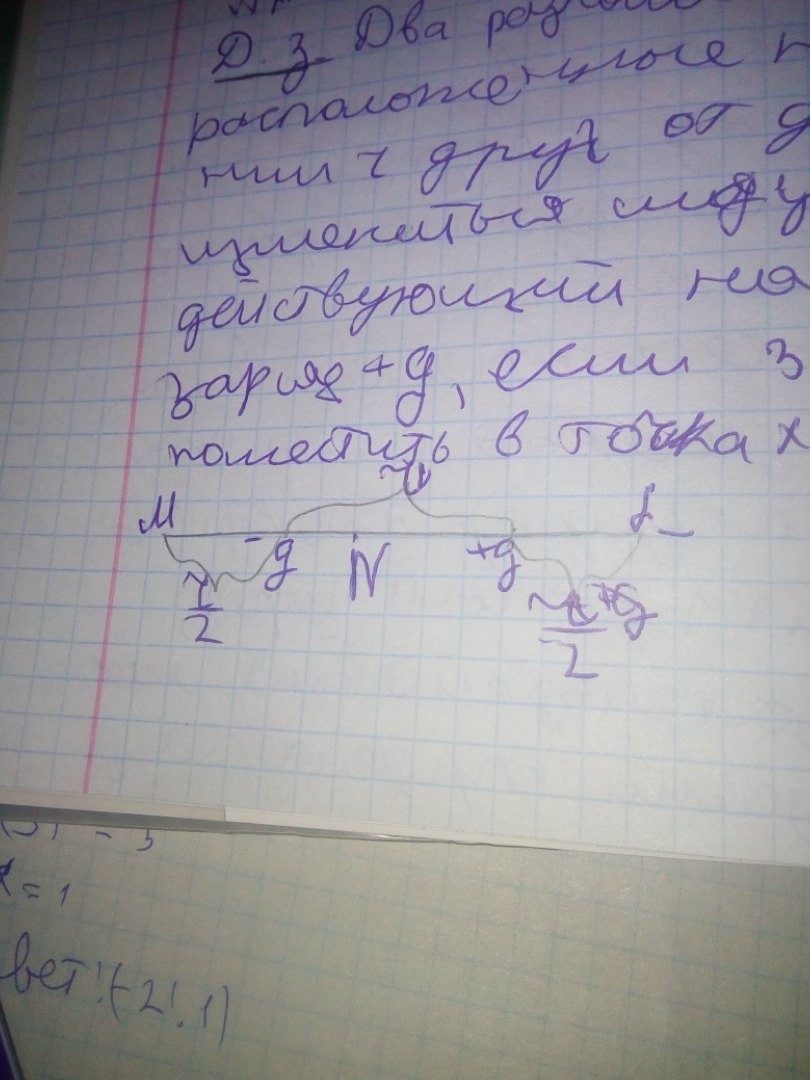 Д.з. Два разны
расположенные н
нии r друг от д
измениться моду
действующий на
заряд +q, если з
поместить в точках
r
M -q N +q L
r/2 r/2 +q
3
x = 1
вет: (-2; 1)